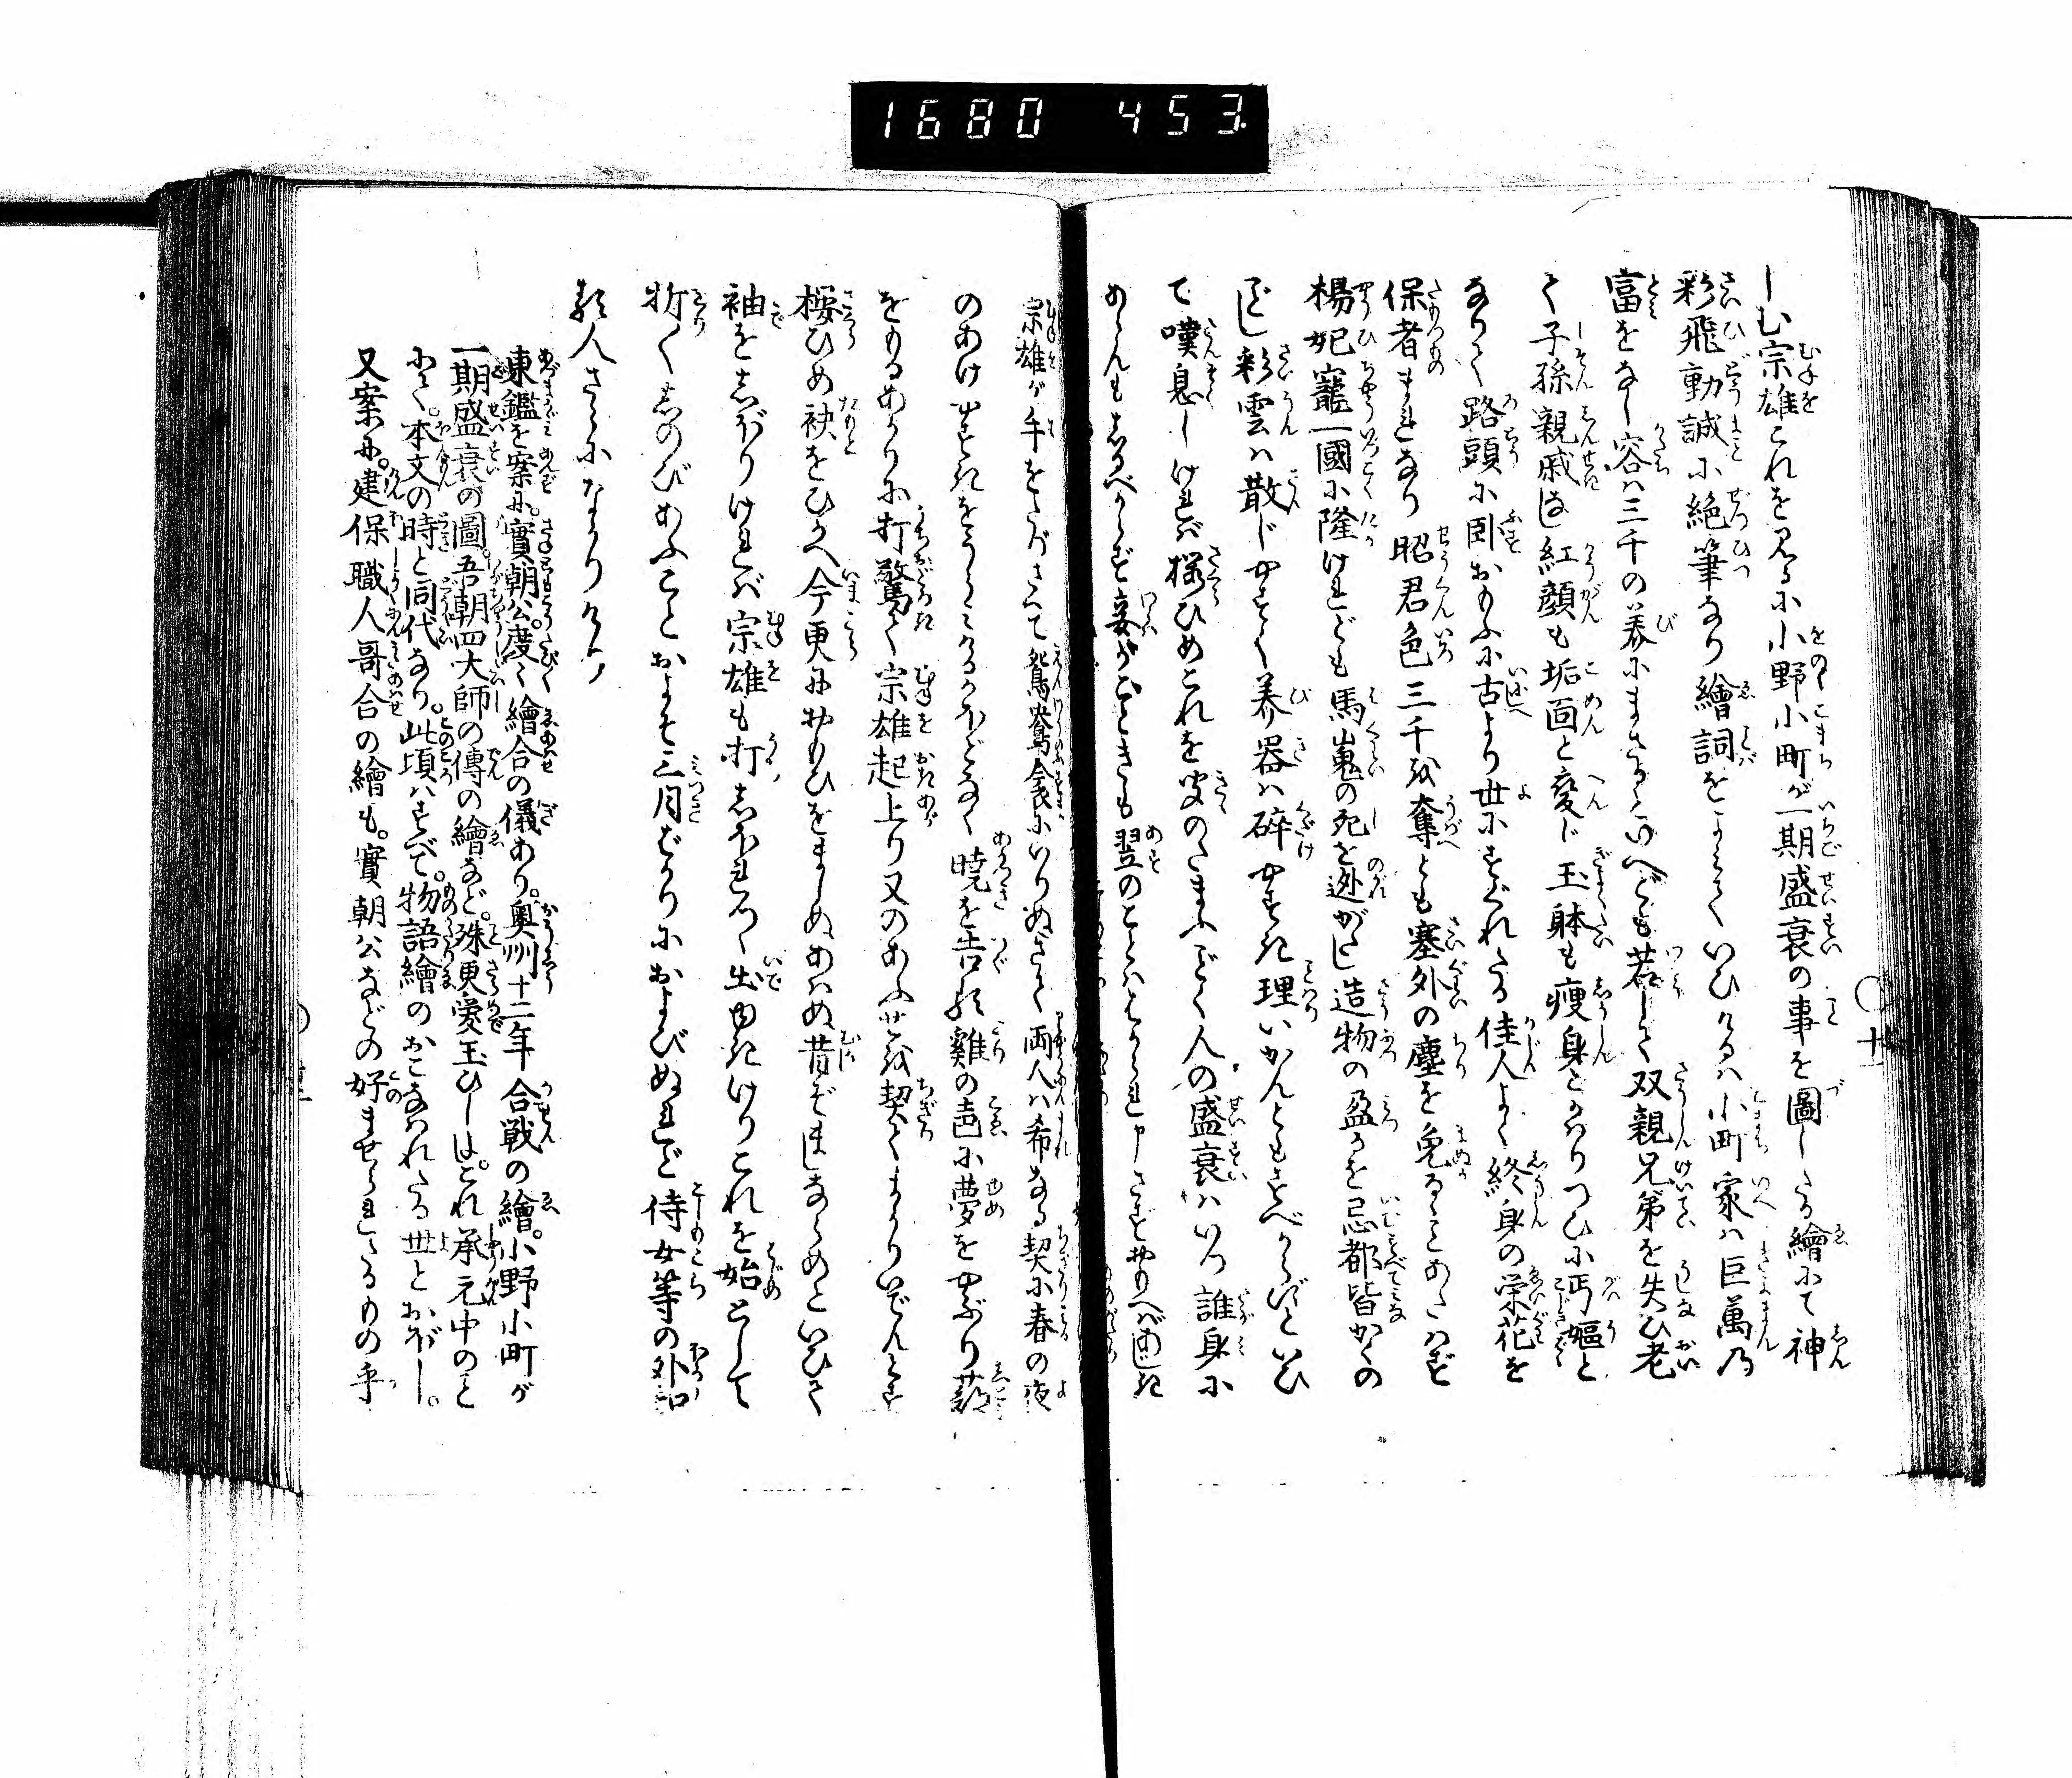 1680 453
しむ宗雄これを見るに小野小町が一期盛衰の事を圖したる繪にて神
彩飛動誠に絶筆なり繪詞をよみていひけるは小町家は巨萬乃
富をなし容は三千の美にまさるといへども若して双親兄弟を失ひ老
て子孫親戚なく紅顔も垢面と変じ玉躰も痩身とかはりつひに丐嫗と
なりて路頭に臥おもふに古より世にすぐれたる佳人よく終身の栄花を
保者まれなり昭君色三千を奪とも塞外の塵を免るゝことあたはず
楊妃寵一國に隆けれども馬嵬の死を逃がたし造物の盈るを忌都皆かくの
ごとし彩雲は散じやすく美器は碎やすき理いかんともすべからずといひ
て嘆息しければ櫻ひめこれを聞のたまふごとく人の盛衰はいつ誰身に
あらんもしるべからず妾がごときも翌のことはとはかられ申さずおもへば
宗雄が手をたづさへて鴛鴦衾にいりぬさて両人は希なる契に春の夜
のあけやすきをうらみけるかほどなく暁を告る雞の声に夢をやぶり
をもるあかりに打驚て宗雄起上り又のあふせを契てまかりいでんとす
桜ひめ袂をひかへ今更におもひをましぬあはぬ昔ぞましならめといひて
袖をしぼりければ宗雄も打しほれつゝ出ゆきけりこれを始として
折〳〵しのびあふことおよそ三月ばかりにおよびぬれど侍女等の外知
る人さらになかりけり
東鑑を案に。實朝公。度〻繪合の儀あり。奥州十二年合戦の繪。小野小町が
一期盛衰の圖。吾朝四大師の傳の繪など。殊更愛玉ひしは。これ承元中のこと
にて。本文の時と同代なり。此頃はすべて。物語繪のおこなはれたる世とおぼし。
又案に。建保職人哥合の繪も。實朝公などの好ませられたるもの乎